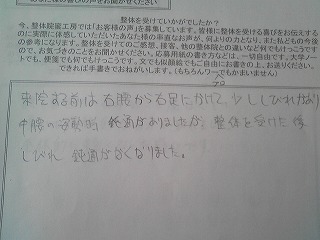 整体を受けていかがでしたか？
今、整体院園工房では「お客様の声」を募集しています。皆様に整体を受ける喜びをお伝えする
のに実際に体感していただいたあなた様の率直なお声が、何よりの力となり、また私どもの今後
の参考になります。整体を受けてのご感想、接客、他の整体院との違いなど何でもけっこうです
ので、お気軽にお聞かせください。応募用紙の書き方などは、一切自由です。大学ノー
トでも、便箋でも何でもけっこうです。文でも似顔絵でもご自由にお書きの上、お送りください。
できれば手書きでおねがいします。（もちろんワープロでもかまいません）
来院する前は右腰から右足にかけて、少ししびれがあり
中腰の
鈍痛がありましたが、整体を受けた後
しびれ 鈍痛がなくなりました。